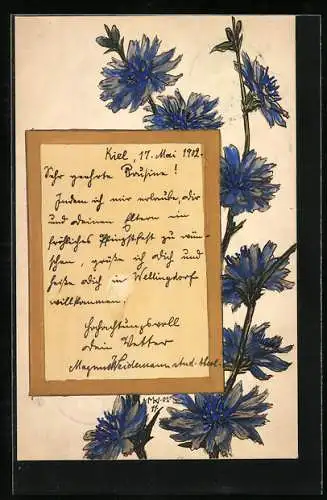 Kiel, 17. Mai 1902.
Sehr geehrte Cousine!
Indem ich mir erlaube, dir
und deinen Eltern ein
fröhliches Pfingstfest zu wün-
schen, grüße ich dich und
heiße dich in Wellingdorf
willkommen.
Hochachtungsvoll
dein Vetter
Magnus Weidemann stud. theol.